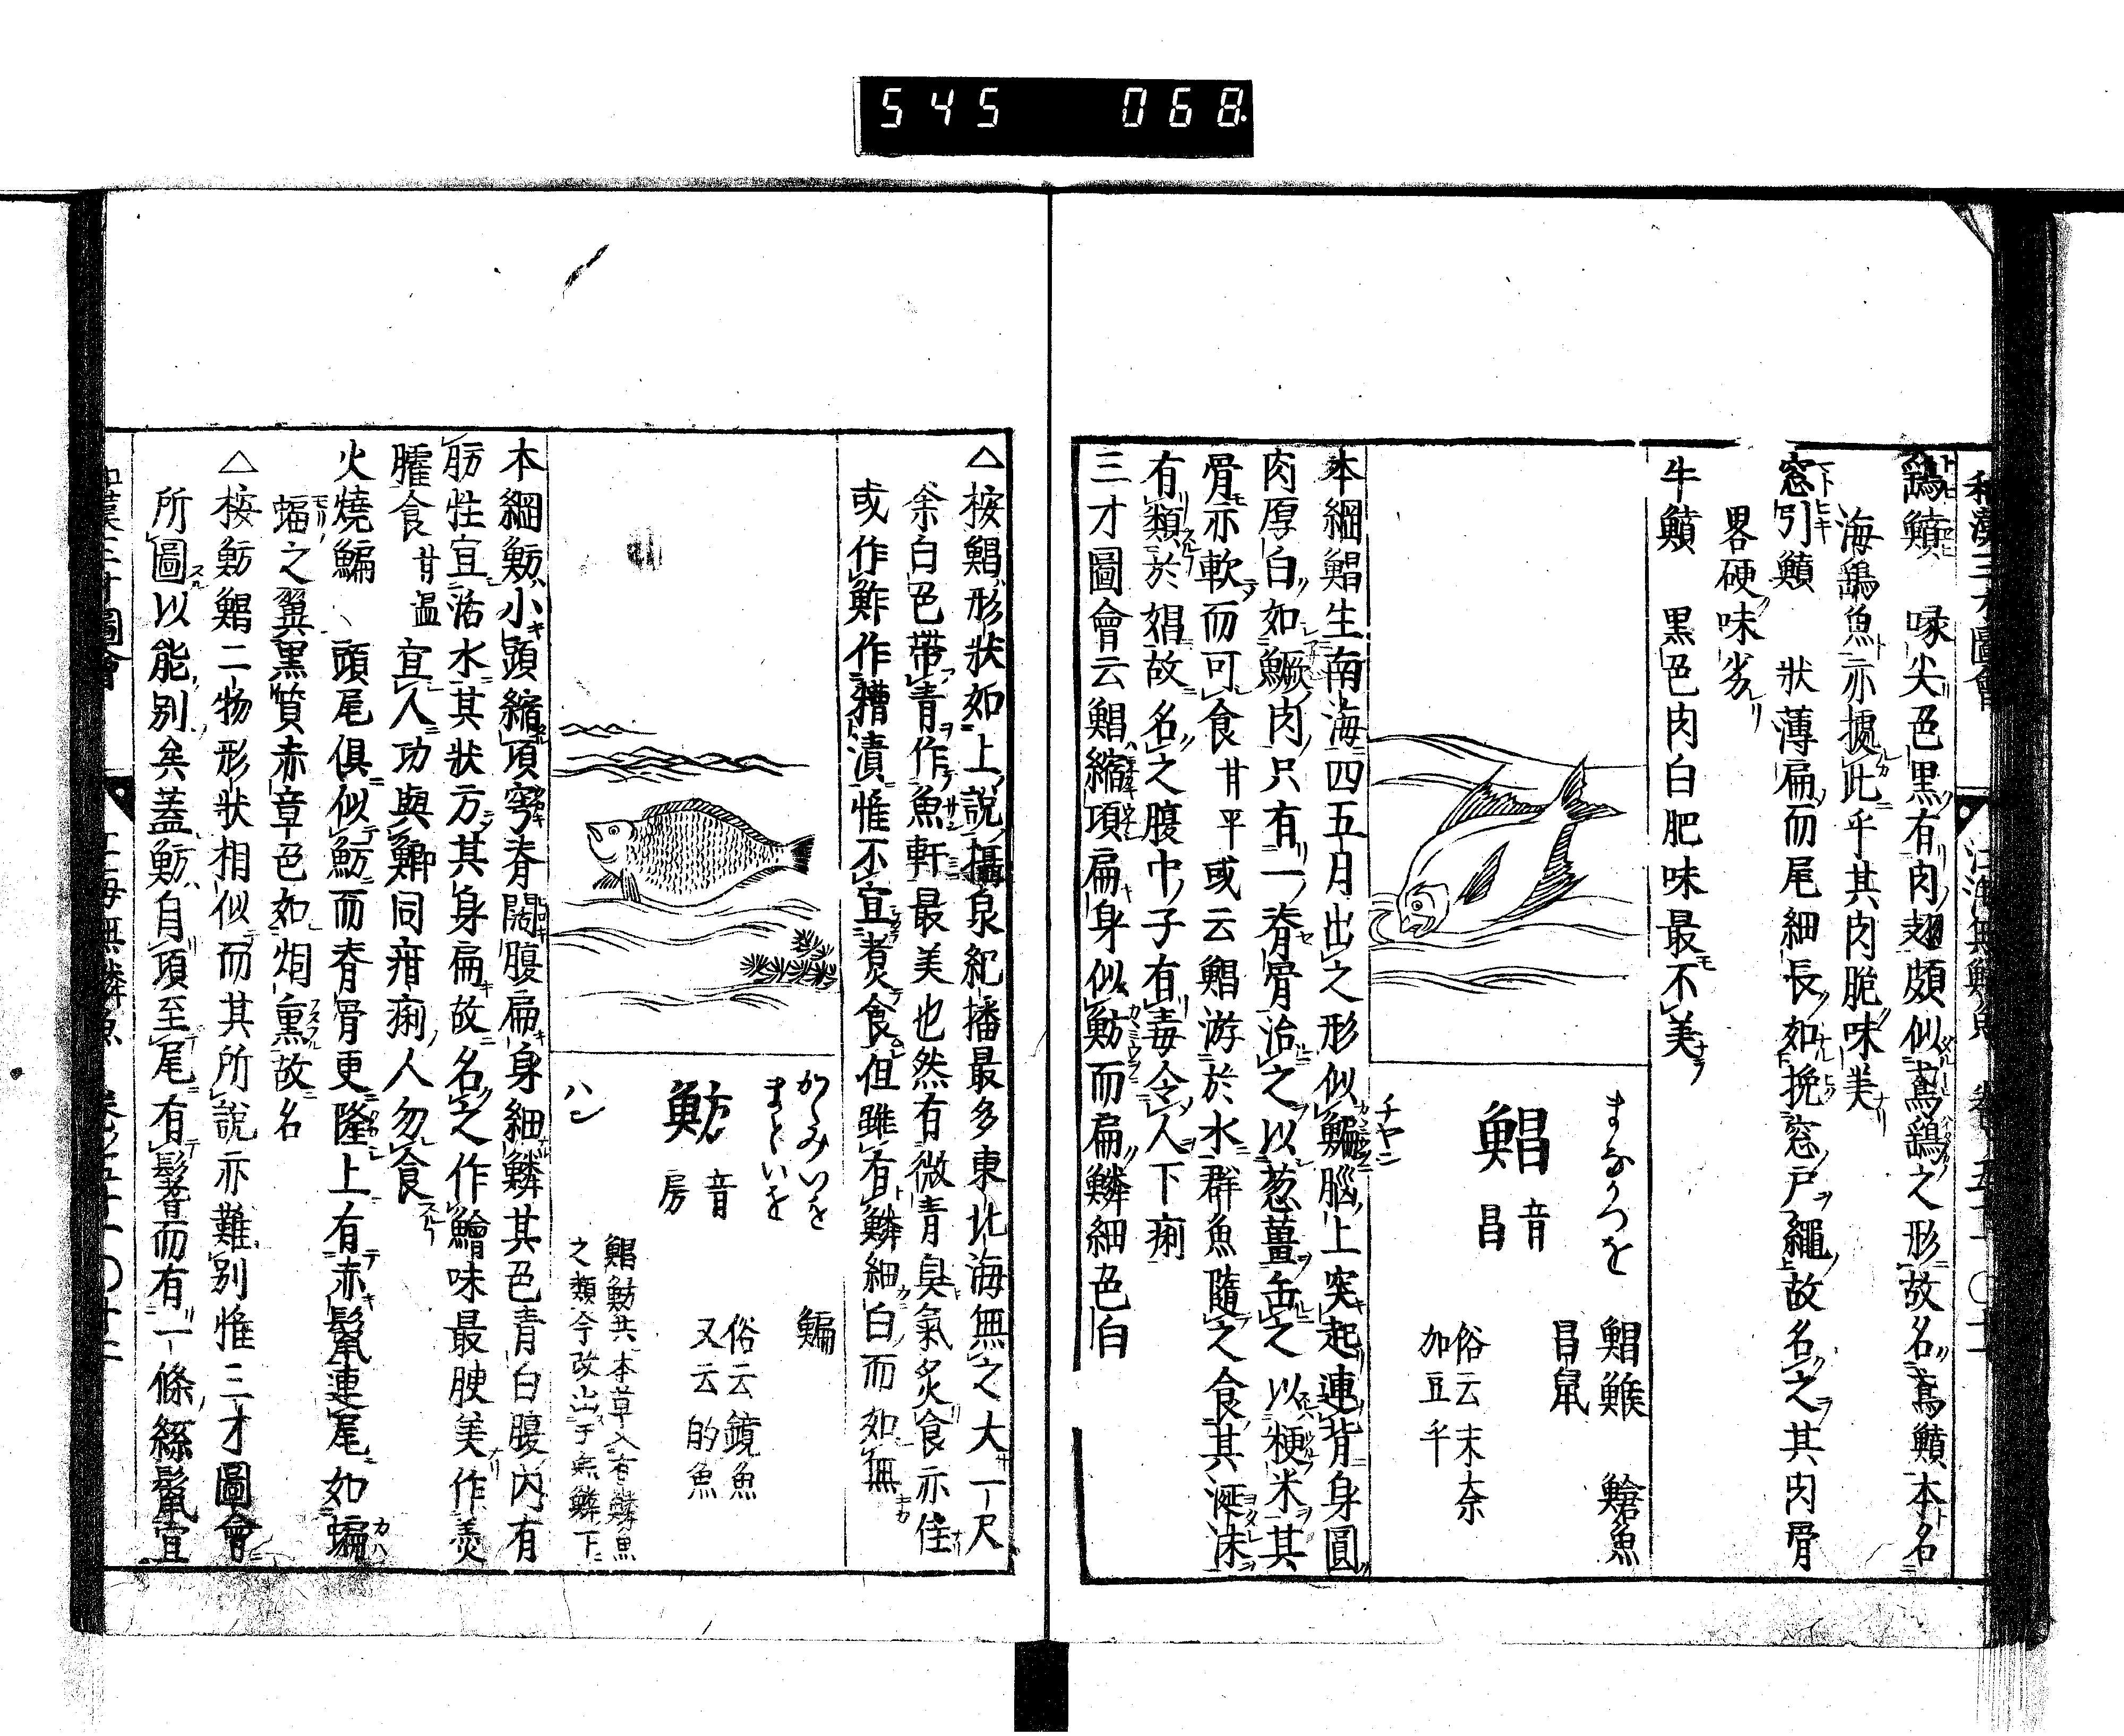 545 068
鷂鱝 喙尖色黒有肉翅頗似鳶鷂之形故名鳶鱝本名
海鷂魚亦據此乎其肉脆味美
窓引鱝 狀薄扁而尾細長如挽窓戸繩故名之其肉骨
畧硬味劣
牛鱝 黒色肉白肥味最不美
まながつを
鯧 音昌
チヤン
鯧鯸 鎗魚
昌鼠
俗云末奈
加豆乎
本綱鯧生南海四五月出之形似鯿腦上突起連背身圓
肉厚白如鱖肉只有一脊骨治之以葱薑缶之以粳米其
骨亦軟而可食 甘平 或云鯧游於水群魚隨之食其涎沫
有類於娼故名之腹中子有毒令人下痢
三才圖會云鯧縮項扁身似魴而扁鱗細色白
△按鯧形狀如上說攝泉紀播最多東北海無之大一尺
余白色帶青作魚軒最美也然有微青臭氣炙食亦佳
或作鮓作糟漬惟不宜煮食但雖有鱗細白而如無
かゞみいを
まといを
魴 音房
ハン
鯿
俗云鏡魚
又云的魚
鯧魴共本草入有鱗魚
之類今改出于無鱗下
本綱魴小頭縮項穹脊闊腹扁身細鱗其色青白腹内有
肪性宜活水其狀方其身扁故名之作鱠味最腴美作羹
臛食 甘温 宜人功與鯽同疳痢人勿食
火燒鯿 頭尾俱似魴而脊骨更隆上有赤鬛連尾如蝙
蝠之翼黒質赤章色如烟熏故名
△按魴鯧二物形狀相似而其所說亦難別惟三才圖會
所圖以能別矣蓋魴自項至尾有鬐而有一條絲鬛宜